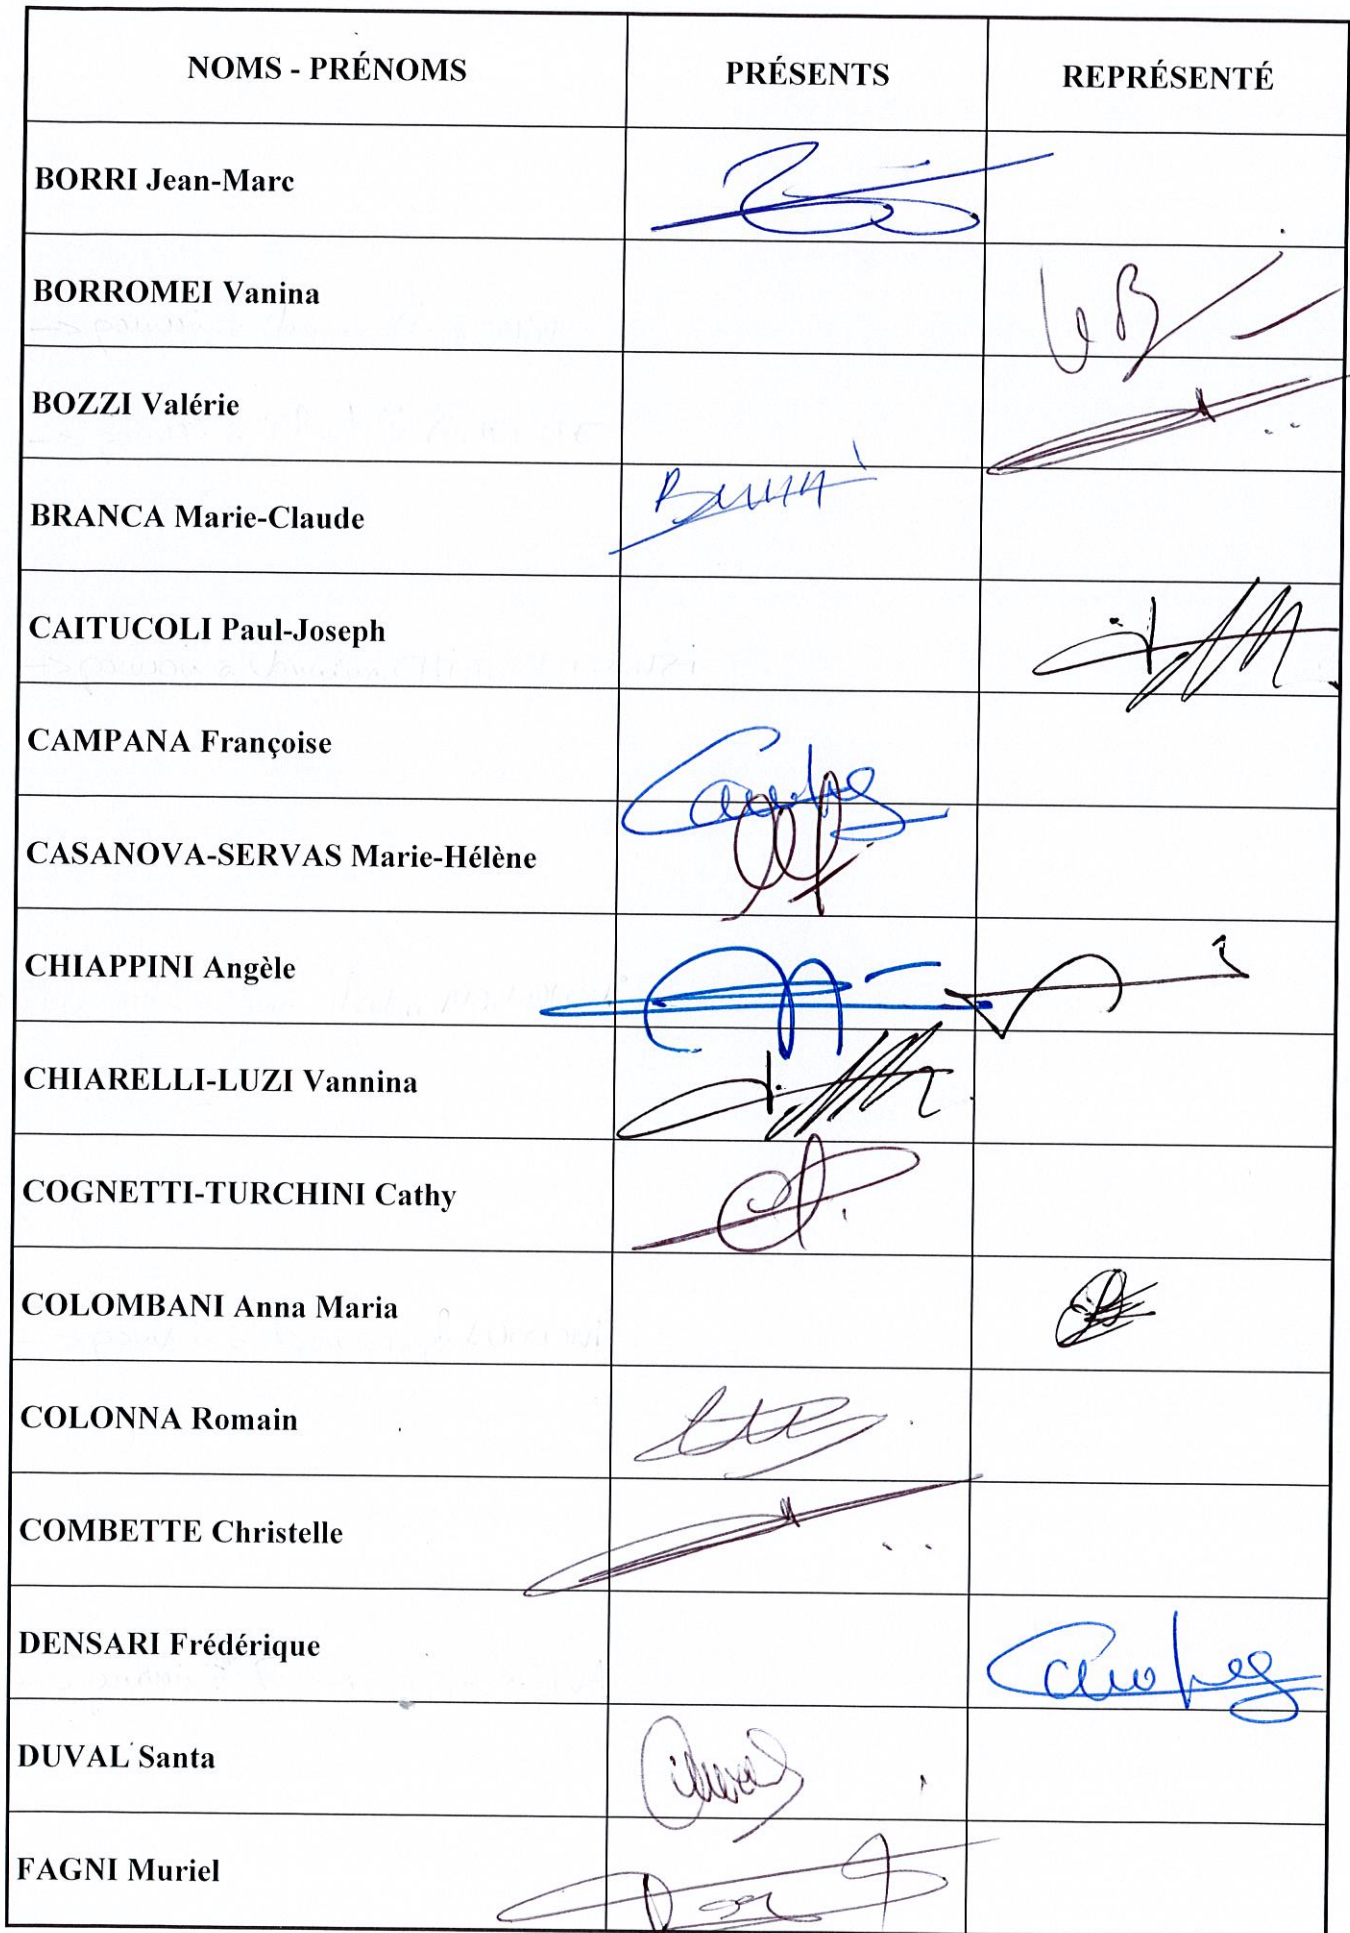 NOMS - PRÉNOMS PRÉSENTS REPRÉSENTÉ
BORRI Jean-Marc
BORROMEI Vanina
BOZZI Valérie
BRANCA Marie-Claude
CAITUCOLI Paul-Joseph
CAMPANA Françoise
CASANOVA-SERVAS Marie-Hélène
CHIAPPINI Angèle
CHIARELLI-LUZI Vannina
COGNETTI-TURCHINI Cathy
COLOMBANI Anna Maria
COLONNA Romain
COMBETTE Christelle
DENSARI Frédérique
DUVAL Santa
FAGNI Muriel